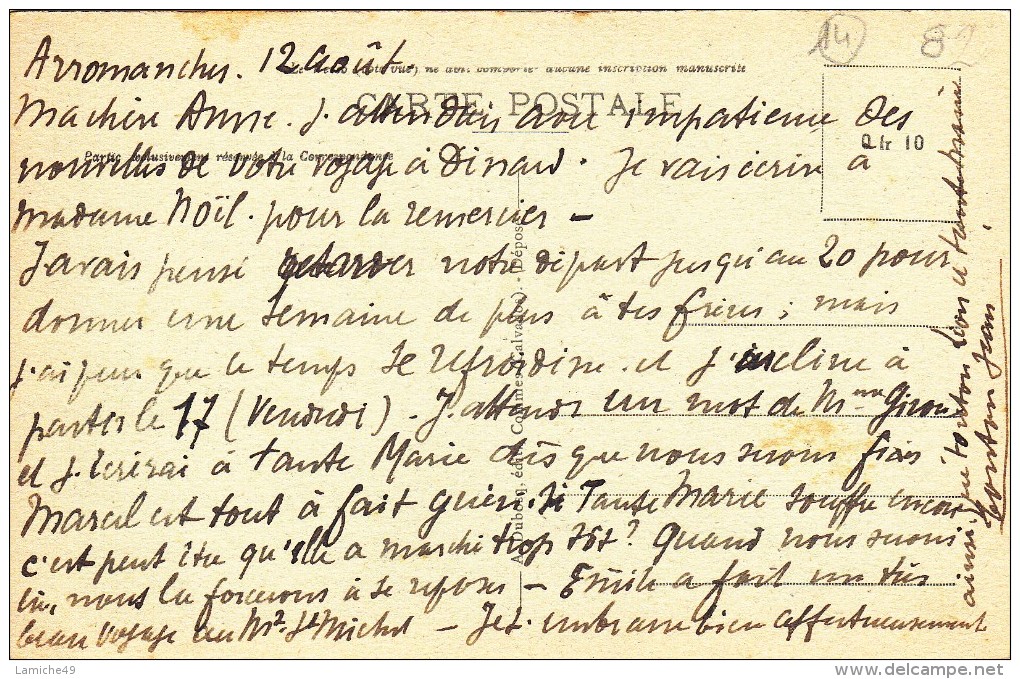 14 8
Arromanches. 12 Août.
ne doit comporter aucune inscription manuscrite
CARTE POSTALE
Ma chère Anne. J. attendais avec impatience des
2 fr 10
Partie exclusivement réservée à la Correspondance
nouvelles de votre voyage à Dinard. Je vais écrire à
madame Noïl. pour la remercier —
J'avais pensé retarder notre départ jusqu'au 20 pour
donner une semaine de plus à tes frères ; mais
j'ai peur que le temps se refroidisse et j'incline à
partir le 17 (Vendredi). J. attends un mot de Mme Girou
et j. écrirai à tante Marie dès que nous serons fixés
Marcel est tout à fait guéri. Si Tante Marie souffre encore
c'est peut être qu'elle a marché trop tôt ? Quand nous serons
là, nous la forcerons à se reposer — Emile a fait un très
beau voyage au Mt St Michel — Je t. embrasse bien affectueusement
ainsi que tonton Léon et tante
Tonton Jean
édit., (Calvados). - Déposé
Lamiche49
www.delcampe.net